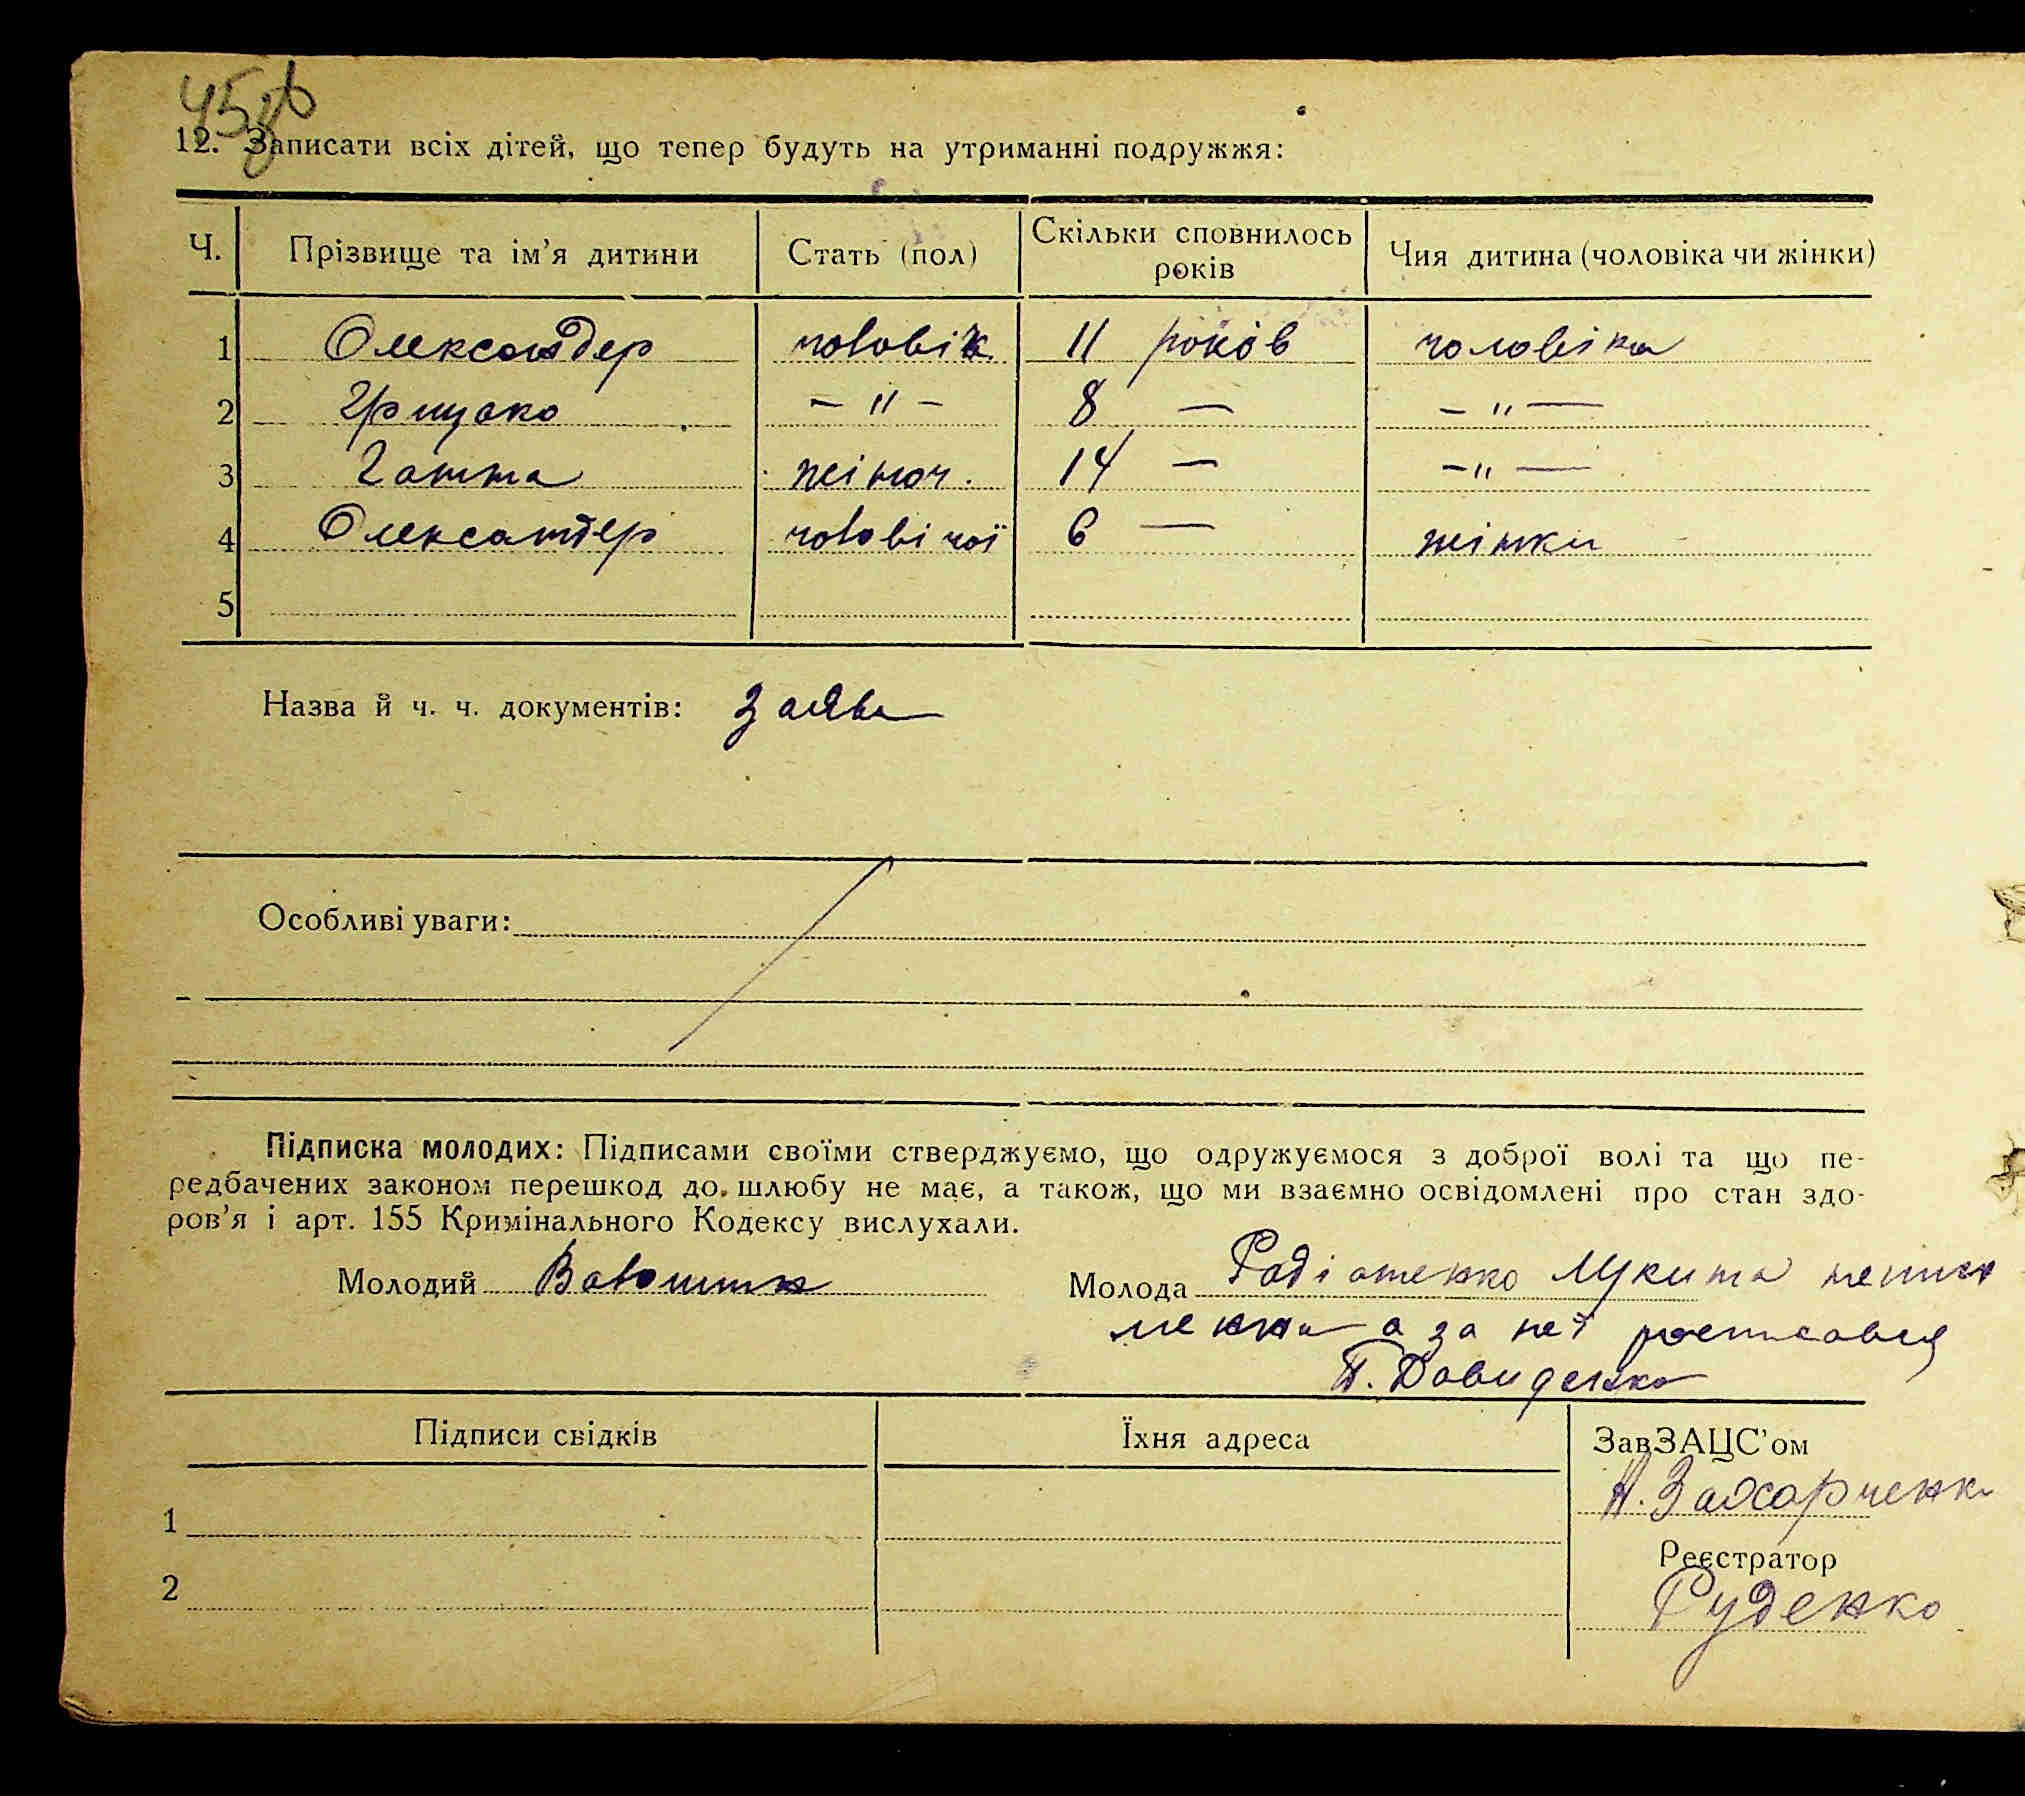 45зв
12. Записати всіх дітей, що тепер будуть на утриманні подружжя:
Ч. Прізвище та ім’я дитини Стать (пол) Скільки сповнилось років Чия дитина (чоловіка чи жінки)
1 Олександер чоловік 11 років чоловіка
2 Грицько – " – 8 — – " —
3 Ганна жіноч. 14 — – " —
4 Олександер чоловічої 6 — жінки
5
Назва й ч. ч. документів: Заява
Особливі уваги:
Підписка молодих: Підписами своїми стверджуємо, що одружуємося з доброї волі та що пе-
редбачених законом перешкод до шлюбу не має, а також, що ми взаємно освідомлені про стан здо-
ров’я і арт. 155 Кримінального Кодексу вислухали.
Молодий Волошин Молода Радіоненко
а за неї росписався
Давиденко
Підписи свідків Їхня адреса ЗавЗАЦС’ом
Захарченко
1
Реєстратор
2 Руденко